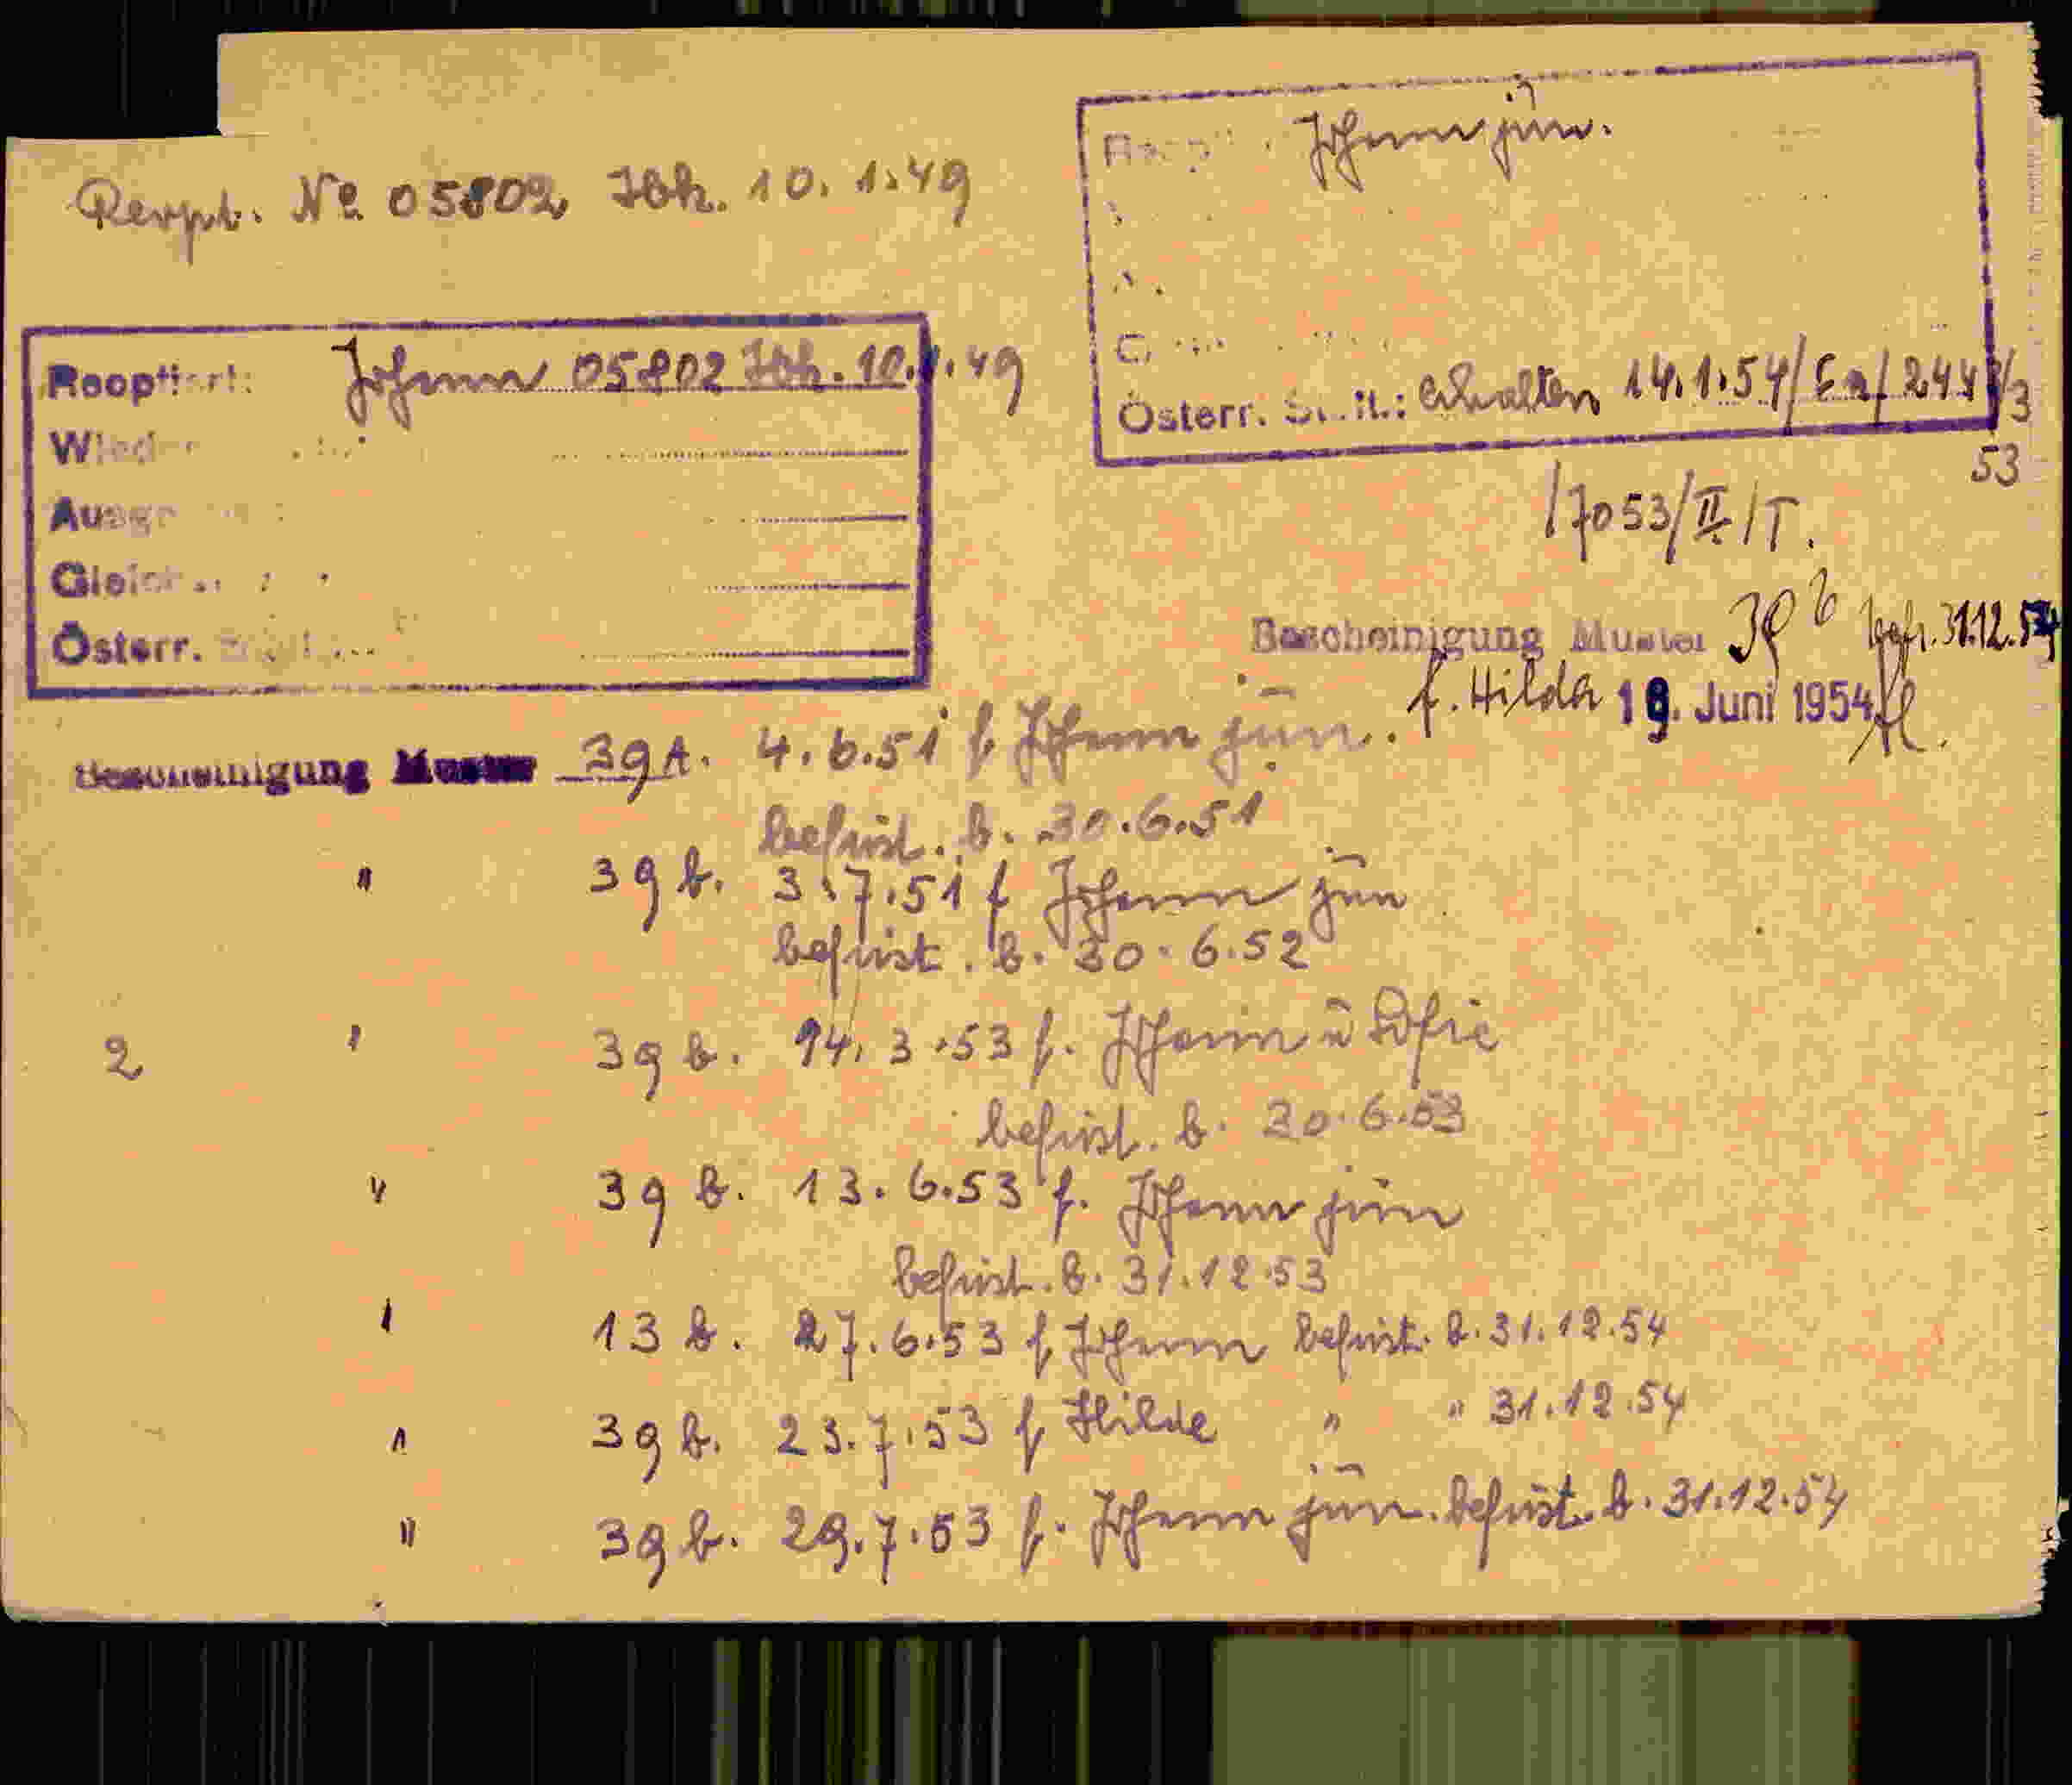 Reopt. No 05802 Ibk. 10.1.49
Johann jun.
Österr.
erhalten 14.1.54/Ea/244
53
/7053/II/T.
Reoptiert: Johann 05802 Ibk. 10.1.49
Österr.
Bescheinigung Muster 39 b befr. 31.12.54
f. Hilda 19. Juni 1954
Bescheinigung Muster 39 A. 4.6.51 f. Johann jun.
befrist. b. 30.6.51
" 39 b. 3.7.51 f Johann jun
befrist. b. 30.6.52
2 " 39 b. 14.3.53 f. Johann u Sofie
befrist. b. 30.6.53
" 39 b. 13.6.53 f. Johann jun
befrist. b. 31.12.53
" 13 b. 27.6.53 f Johann befrist. b. 31.12.54
" 39 b. 23.7.53 f Hilde " " 31.12.54
" 39 b. 29.7.53 f. Johann jun. befrist. b. 31.12.54